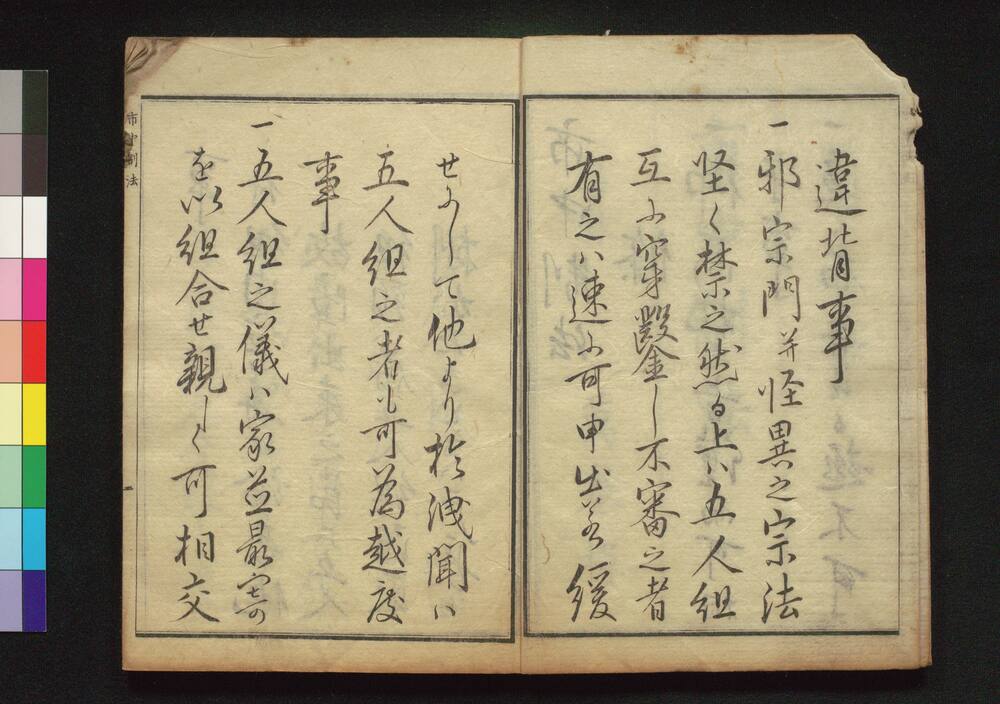 違背事
一邪宗門并怪異之宗法
堅く禁之然る上ハ五人組
互ニ穿鑿し不審之者
有之ハ速ニ可申出若緩
せニして他より於洩聞ハ
五人組之者も可為越度
事
一五人組之儀ハ家並最寄
を以組合せ親しく可相交
市中制法
一